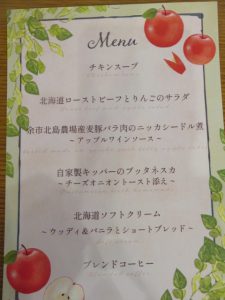 Menu
チキンスープ
北海道ローストビーフとりんごのサラダ
余市北島農場産麦豚バラ肉のニッカシードル煮
～アップルワインソース～
自家製キッパーのプッタネスカ
～チーズオニオントースト添え～
北海道ソフトクリーム
～ウッディ&バニラとショートブレッド～
ブレンドコーヒー